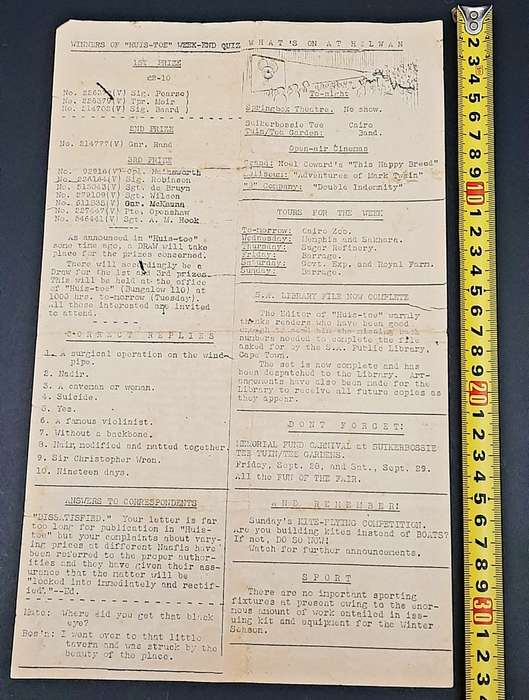 WINNERS OF "HUIS-TOE" WEEK-END QUIZ
1ST PRIZE
No. (V) Sig. Pearse)
No. (V) Tpr. Moir )
No. (V) Sig. Beard )
2ND PRIZE
No. 214777(V) Gnr. Hand
3RD PRIZE
No. (V) Cpl.
No. (V) Sig. Robinson
No. (V) Sgt. de Bruyn
No. (V) Sgt. Wilson
No. (V) Gnr. McKenna
No. (V) Pte. Openshaw
No. (V) Sgt. A. M. Hook
As announced in "Huis-toe"
some time ago, a DRAW will take
place for the prizes concerned.
There will accordingly be a
Draw for the 1st and 3rd prizes.
This will be held at the office
of "Huis-toe" (Bungalow 110) at
1000 hrs. to-morrow (Tuesday).
All those interested are invited
to attend.
CORRECT REPLIES
1. A surgical operation on the wind-
pipe.
2. Nadir.
3. A caveman or woman.
4. Suicide.
5. Yes.
6. A famous violinist.
7. Without a backbone.
8. Hair, modified and matted together.
9. Sir Christopher Wren.
10. Nineteen days.
ANSWERS TO CORRESPONDENTS
"DISSATISFIED." Your letter is far
too long for publication in "Huis-
toe" but your complaints about vary-
ing prices at different Naafis have
been referred to the proper author-
ities and they have given their ass-
urance that the matter will be
"looked into immediately and rectif-
ied."--Ed.
Mate: Where did you get that black
eye?
Bos'n: I went over to that little
tavern and was struck by the
beauty of the place.
WHAT'S ON AT HELWAN
To-night
Springbok Theatre. No show.
Suikerbossie Tee Cairo
Tuin/Tea Garden: Band.
Open-air Cinemas
Grand: Noel Coward's "This Happy Breed"
"Adventures of Mark Twain"
Company: "Double Indemnity"
TOURS FOR THE WEEK
To-morrow: Cairo Zoo.
Wednesday: Memphis and Sakhara.
Thursday: Sugar Refinery.
Friday: Barrage.
Saturday: Govt. Exp. and Royal Farm.
Sunday: Barrage.
S.A. LIBRARY FILE NOW COMPLETE
The Editor of "Huis-toe" warmly
thanks readers who have been good
enough to send him the missing back
numbers needed to complete the file
asked for by the S.A. Public Library,
Cape Town.
The set is now complete and has
been despatched to the Library. Arr-
angements have also been made for the
Library to receive all future copies as
they appear.
DONT FORGET!
MEMORIAL FUND CARNIVAL at SUIKERBOSSIE
TEE TUIN/TEE GARDENS.
Friday, Sept. 28, and Sat., Sept. 29.
All the FUN OF THE FAIR.
AND REMEMBER!
Sunday's KITE-FLYING COMPETITION.
Are you building kites instead of BOATS?
If not, DO SO NOW!
Watch for further announcements.
SPORT
There are no important sporting
fixtures at present owing to the enor-
mous amount of work entailed in iss-
uing kit and equipment for the Winter
Season.
2
3
4
5
6
7
8
9
10
1
2
3
4
5
6
7
8
9
20
1
2
3
4
5
6
7
8
9
30
1
2
3